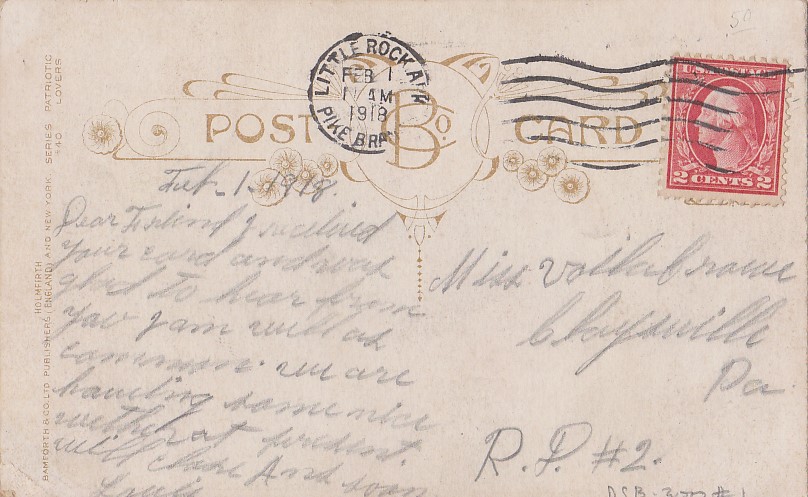 50
LITTLE ROCK ARK
FEB 1
11 AM
1918
PIKE BRANCH
POST CARD
B Co.
2 CENTS 2
PATRIOTIC LOVERS
SERIES 440
HOLMFIRTH
BAMFORTH & CO. LTD PUBLISHERS (ENGLAND) AND NEW YORK
Feb. 1. 1918.
Dear Friend I received
your card and was
glad to hear from
you I am well as
common. we are
haveing some nice
wether at present.
will close Ans soon
Miss Volla Browne
Claysville
Pa
R.D. #2.